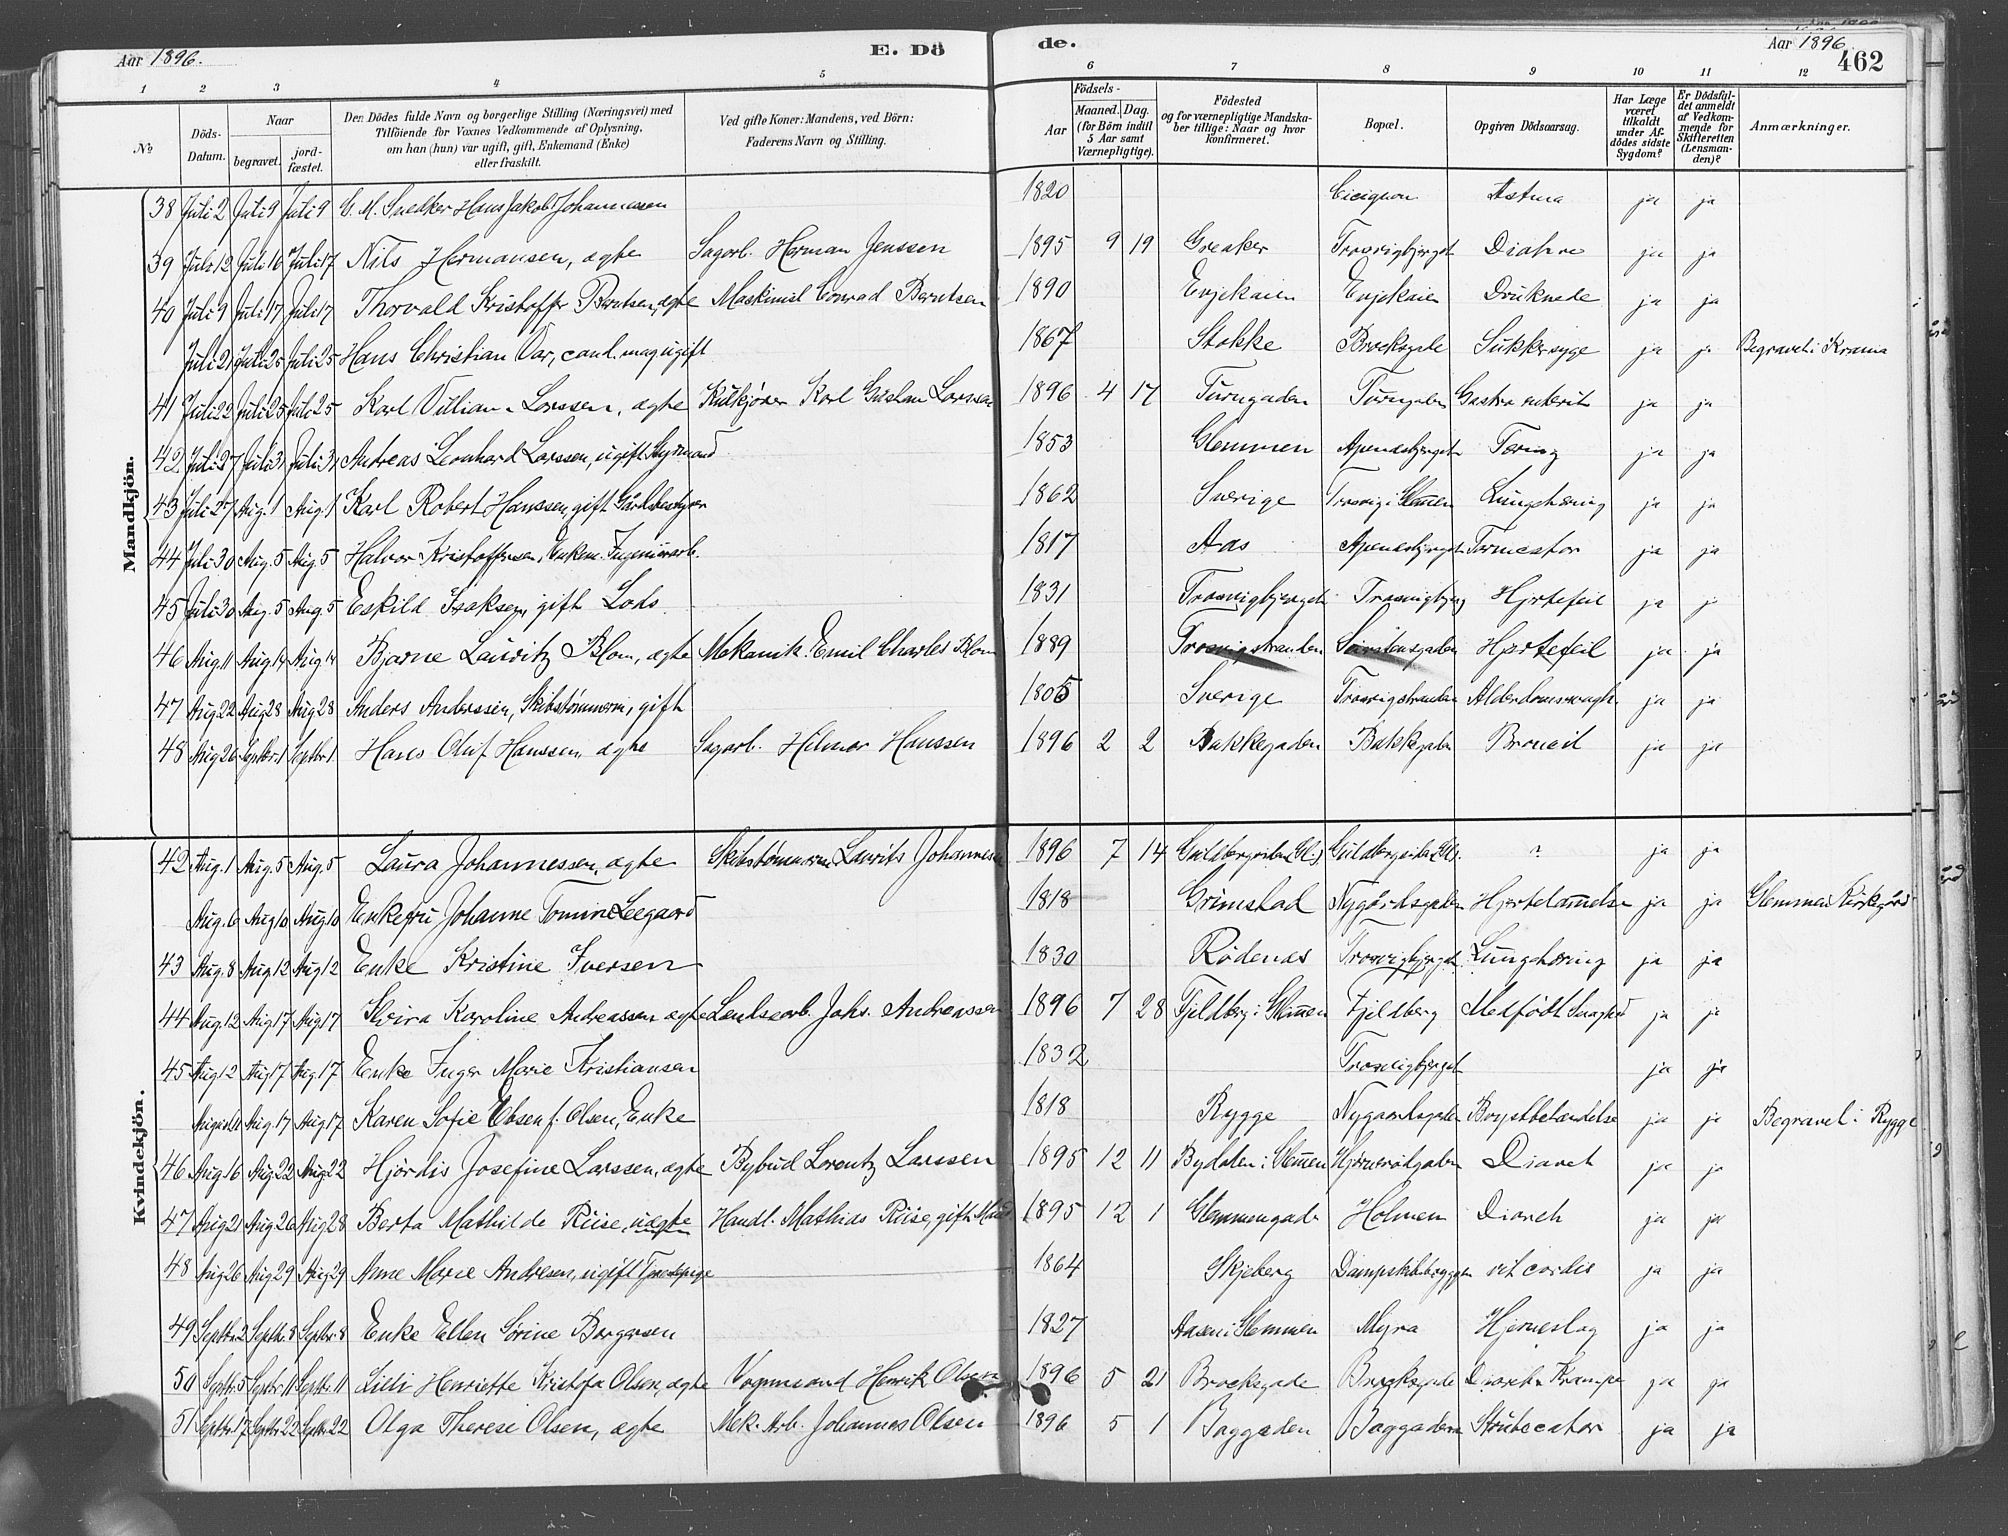 Aar 1896. E. Dö de. Aar 1896. 462
1 2 3 4 5 6 7 8 9 10 11 12
No Döds-Datum. Naar begravet. jordfæstet. Den Dödes fulde Navn og borgerlige Stilling (Næringsvei) med Tilföiende for Voxnes Vedkommende af Oplysning, om han (hun) var ugift, gift, Enkemand (Enke) eller fraskilt. Ved gifte Koner: Mandens, ved Börn: Faderens Navn og Stilling. Födsels- Aar Maaned. Dag. (for Börn indtil 5 Aar samt Værnepligtige). Födested og for værnepligtige Mandskaber tillige: Naar og hvor konfirmeret. Bopæl. Opgiven Dödsaarsag. Har Læge været tilkaldt under Afdödes sidste Sygdom? Er Dödsfaldet anmeldt af Vedkommende for Skifteretten (Lensmanden)? Anmærkninger.
Mandkjön.
38 Juli 2 Juli 9 Juli 9 G. M. Snedker Hans Jakob Johannessen 1820 Cicignon Astma ja ja
39 Juli 12 Juli 16 Juli 17 Nils Hermansen, ægte Sagarb. Herman Jenssen 1895 9 19 Greaker Trosvigbjerget Diahre ja ja
40 Juli 9 Juli 17 Juli 17 Thorvald Kristoffer Berntsen, ægte Maskimist Conrad Berntsen 1890 Evjekaien Evjekaien Druknede ja ja
Juli 21 Juli 25 Juli 25 Hans Christian Var, cand. mag ugift 1867 Stokke Brocksgade Sukkersyge ja ja Begravet i Krania
41 Juli 22 Juli 25 Juli 25 Karl Villiam Larssen, ægte Kulkjører Karl Gustav Larssen 1896 4 17 Turngaden Turngaden Gastro enterit ja ja
42 Juli 27 Juli 31 Juli 31 Andreas Leonhard Larssen, ugift Styrmand 1853 Glemmen Apenesbjerget Tæring ja ja
43 Juli 27 Aug. 1 Aug. 1 Karl Robert Hanssen, gift Gårdsbestyrer 1862 Sverige Trosvig i Glemmen Lungetæring ja ja
44 Juli 30 Aug. 5 Aug. 5 Halvor Kristoffersen, Enkem. Ingeniørarb. 1817 Aas Apenesbjerget ja ja
45 Juli 30 Aug. 5 Aug 5 Eskild Isaksen, gift Lods 1831 Trosvigbjerget Trosvigbjerg Hjertefeil ja ja
46 Aug. 11 Aug. 14 Aug 14 Bjarne Lauritz Blom, ægte Mekanik. Emil Charles Blom 1889 Trosvigstranden Hjertefeil ja ja
47 Aug 22 Aug 28 Aug 28 Anders Anderssen, Skibstømmerm., gift 1805 Sverige Trosvigstranden Alderdomssvagh. ja ja
48 Aug 26 Septbr. 1 Septbr. 1 Hans Oluf Hanssen, ægte Sagarb. Hilmar Hanssen 1896 2 2 Bakkegaden Bakkegaden ja ja
Kvindekjön.
42 Aug. 1 Aug. 5 Aug. 5 Laura Johannessen, ægte Skibstømmerm. Laurits Johannessen 1896 7 14 Guldbergsiden (Gl.) Guldbergsiden (Gl.) ? ja ja
Aug. 6 Aug 10 Aug. 10 Enkefru Johanne Tomine Leegaard 1818 Grimstad Nygårdsgaden Hjertelamelse ja ja Glemmen Kirkegård
43 Aug. 8 Aug 12 Aug 12 Enke Kristine Iversen 1830 Rødenæs Trosvigbjerget Lungetæring ja ja
44 Aug. 12 Aug 17 Aug 17 Karoline Andreassen ægte Landsearb. Johs. Andreassen 1896 7 28 Fjeldberg i Glemmen Fjeldberg Medfødt Svaghed ja ja
45 Aug 12 Aug 17 Aug. 17 Enke Inger Marie Kristiansen 1832 Trosvigbjerget ja ja
Aug. 17 Aug. 17 Karen Sofie Ebsen f. Olsen, Enke 1818 Rygge Nygaardsgaden Brystbetændelse ja ja Begravet i Rygge
46 Aug 16 Aug. 22 Aug 22 Hjördis Josefine Larssen, ægte Bybud Lorentz Larssen 1895 12 11 Bydalen i Glemmen Diareh ja ja
47 Aug 21 Aug 26 Aug. 28 Berta Mathilde Riise, uægte Handl. Mathias Riise, gift Mand 1895 12 1 Glemmengade Holmen Diareh ja ja
48 Aug 26 Aug 29 Aug 29 Anne Marie Andresen, ugift Tjenestepige 1864 Skjeberg Dampskibsbryggen vit cordis ja ja
49 Septbr. 2 Septbr. 8 Septbr. 8 Enke Ellen Sørine Borgersen 1827 Aasen i Glemmen Myra Hjerneslag ja ja
50 Septbr. 5 Septbr. 11 Septbr. 11 Lilli Henriette Kristofa Olsen, ægte Vognmand Henrik Olsen 1896 5 21 Brocksgade Brocksgade Diareh Krampe ja ja
51 Septbr. 17 Septbr. 22 Septbr. 22 Olga Therese Olsen, ægte Mek. Arb. Johannes Olsen 1896 5 1 Baggaden Baggaden ja ja